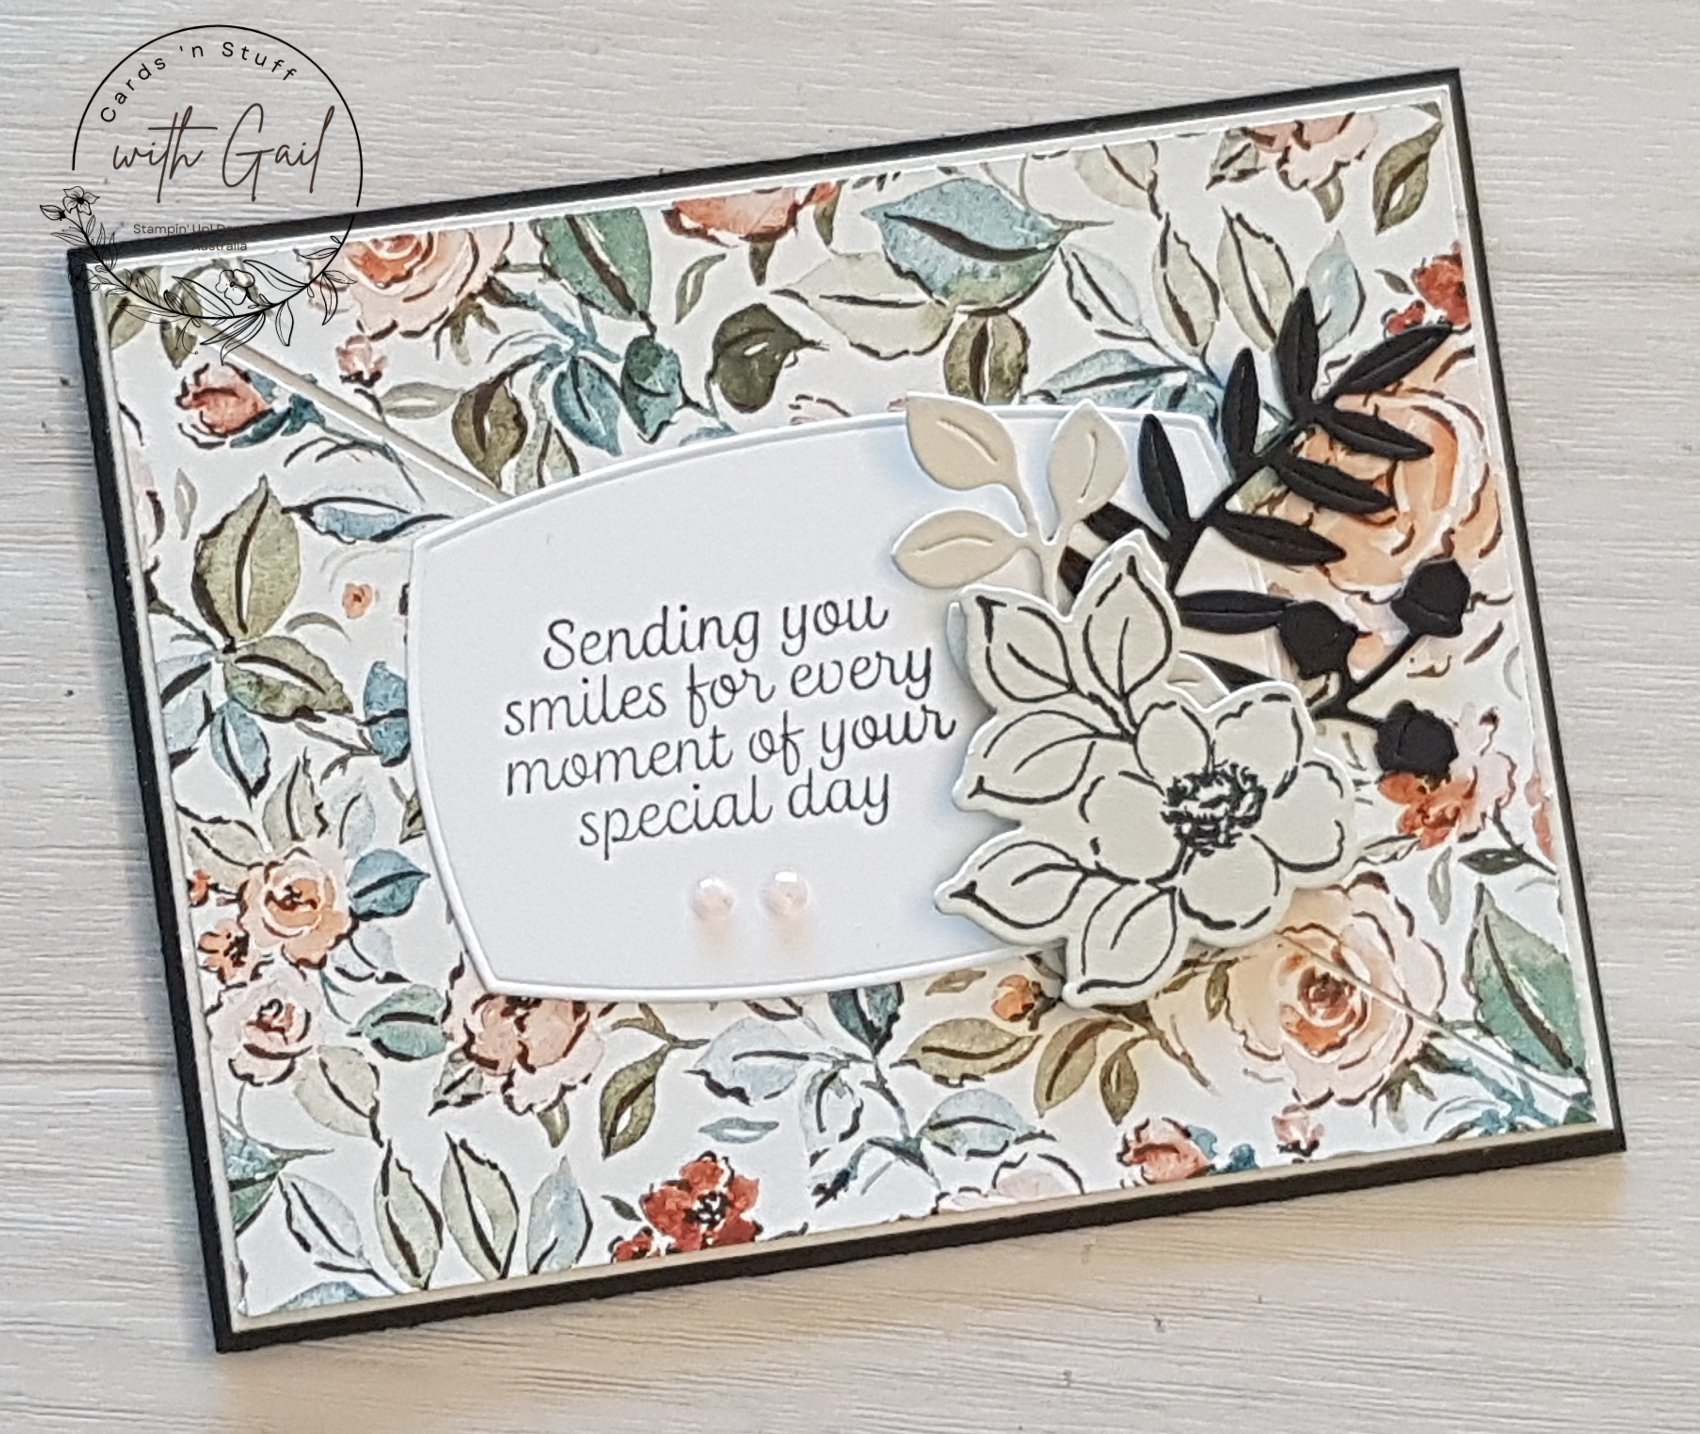 Cards 'n Stuff
with Gail
Stampin' Up!
Australia
Sending you
smiles for every
moment of your
special day